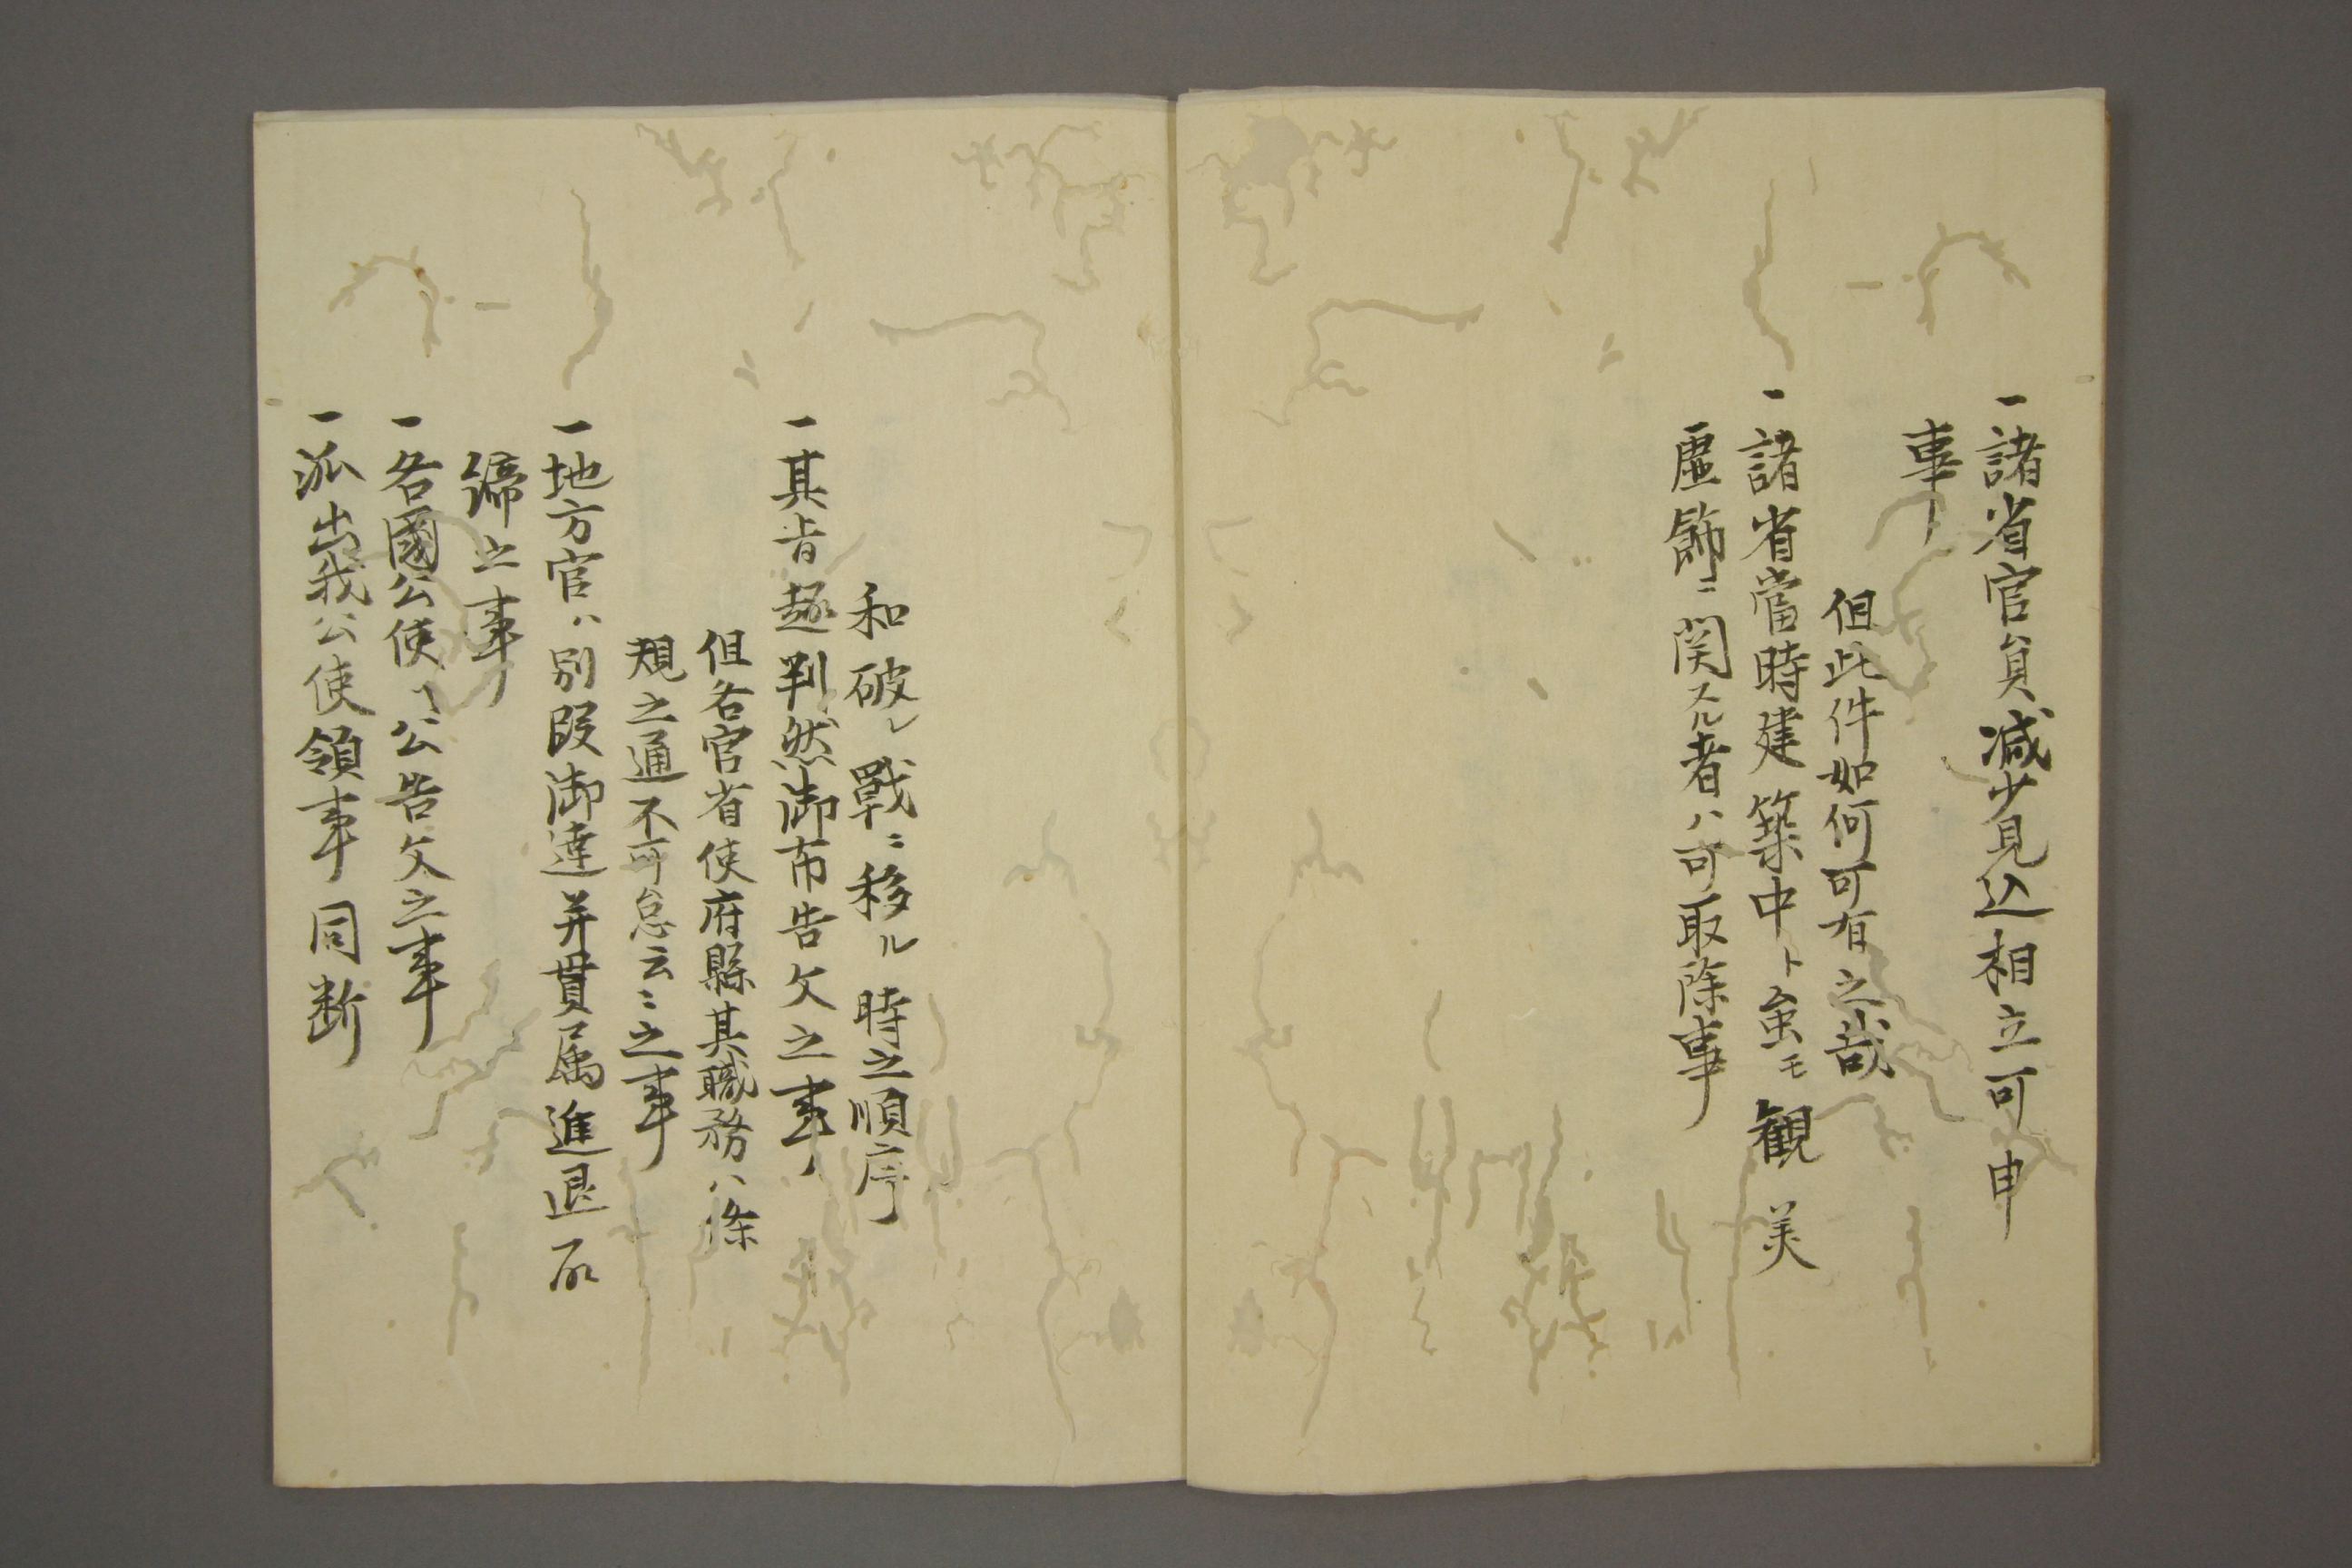 一諸省官員減少見込相立可申
事
但此件如何可有之哉
一諸省當時建築中ト雖モ観美
虚飾ニ関スル者ハ可取除事
和破レ戰ニ移ル時之順序
一其旨趣判然御布告文之事
但各官省使府縣其職務ハ條
規之通不可怠云々之事
一地方官ハ別段御達并貫属進退取
締之事
一各國公使ヘ公告文之事
一派出我公使領事同断